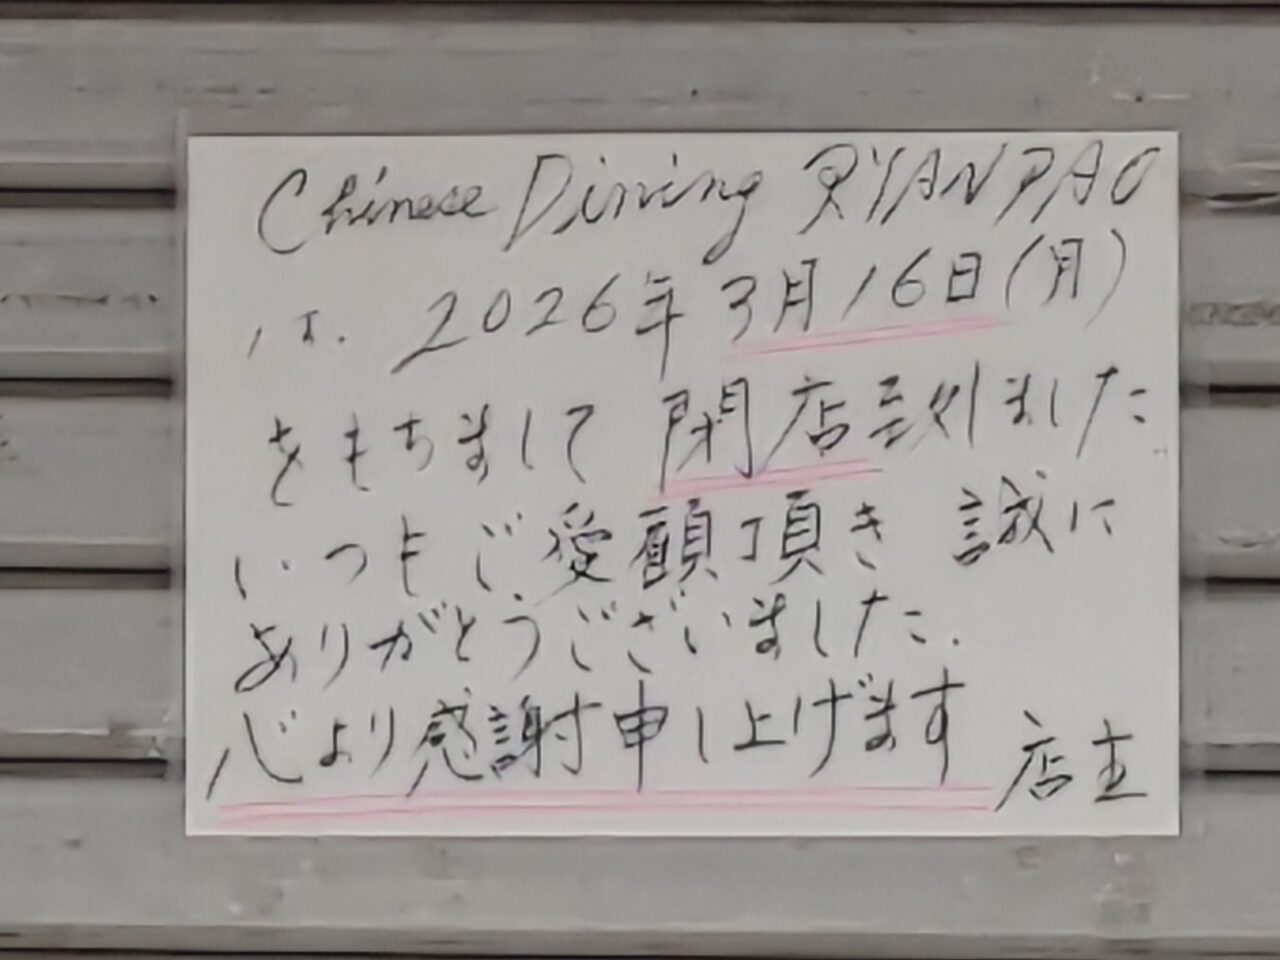 Chinese Dining RYANPAO
は. 2026年3月16日(月)
をもちまして閉店致しました
いつもご愛顧頂き 誠に
ありがとうございました.
心より感謝申し上げます 店主